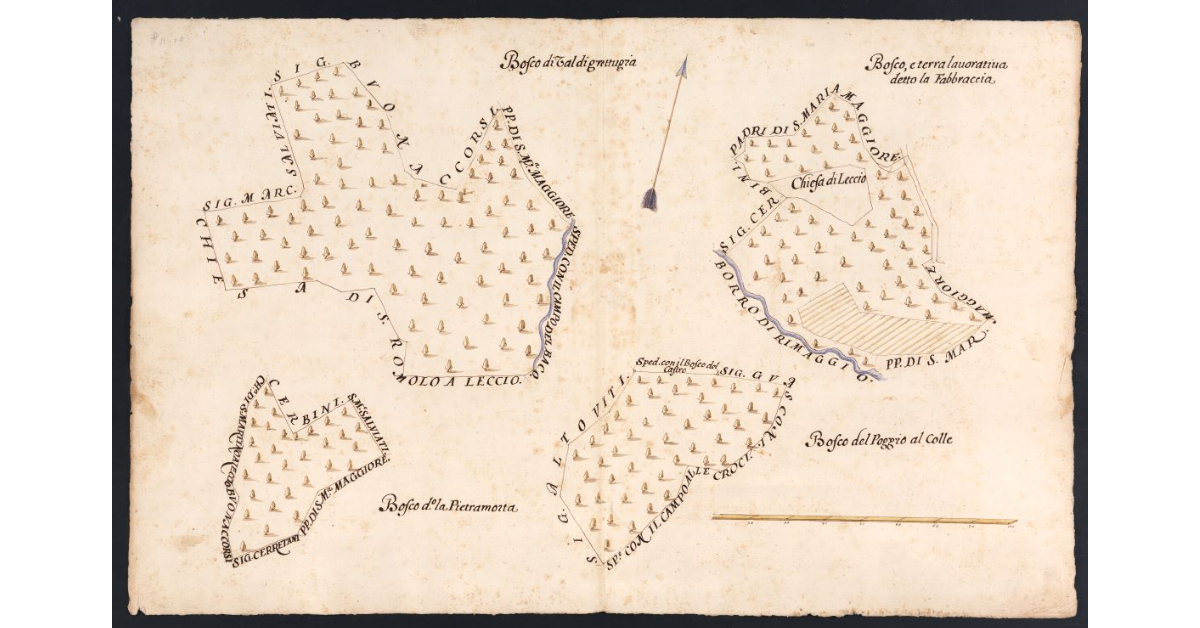 Bosco di Valdigrettugia
SIG. BVONACCORSI
PP. DI S. Mᵃ. MAGGIORE
SPED. CON IL CAMPO DEL BACO.
CHIESA DI S. ROMOLO A LECCIO.
SIG. MARC. SALVIATI.
Bosco, e terra lauoratiua
detto la Fabbraccia
PADRI DI S. MARIA MAGGIORE.
Chiesa di Leccio
SIG. CERBINI
BORRO DI RIMAGGIO.
PP. DI S. MAR. MAGGIORE
CERBINI.
Sᵐ. SALVIATI.
PP. DI S. Mᵃ. MAGGIORE.
SIG. CERRETANI
BVONACCORSI
Bosco d.ᵒ la Pietramorta
Sped. con il Bosco del
Castro
SIG. GVASCONI.
SPᵉ. CON IL CAMPO ALLE CROCI.
SIG. ALTOVITI.
Bosco del Poggio al Colle